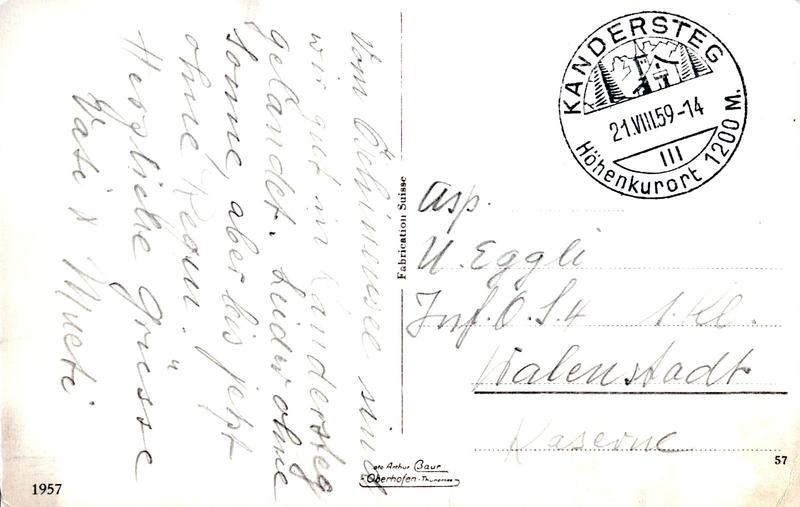 Vom Öschinensee sind
wir gut in Kandersteg
gelandet. Leider ohne
Sonne, aber bis jetzt
ohne Regen.
Herzliche Grüsse
Vati & Mueti
Fabrication Suisse
KANDERSTEG
21.VIII.59-14
III
Höhenkurort 1200 M.
Asp.
U. Eggli
Inf. O.S. 4 1. Kl.
Walenstadt
Kaserne
Foto Arthur Baur
Oberhofen-Thunersee
1957
57